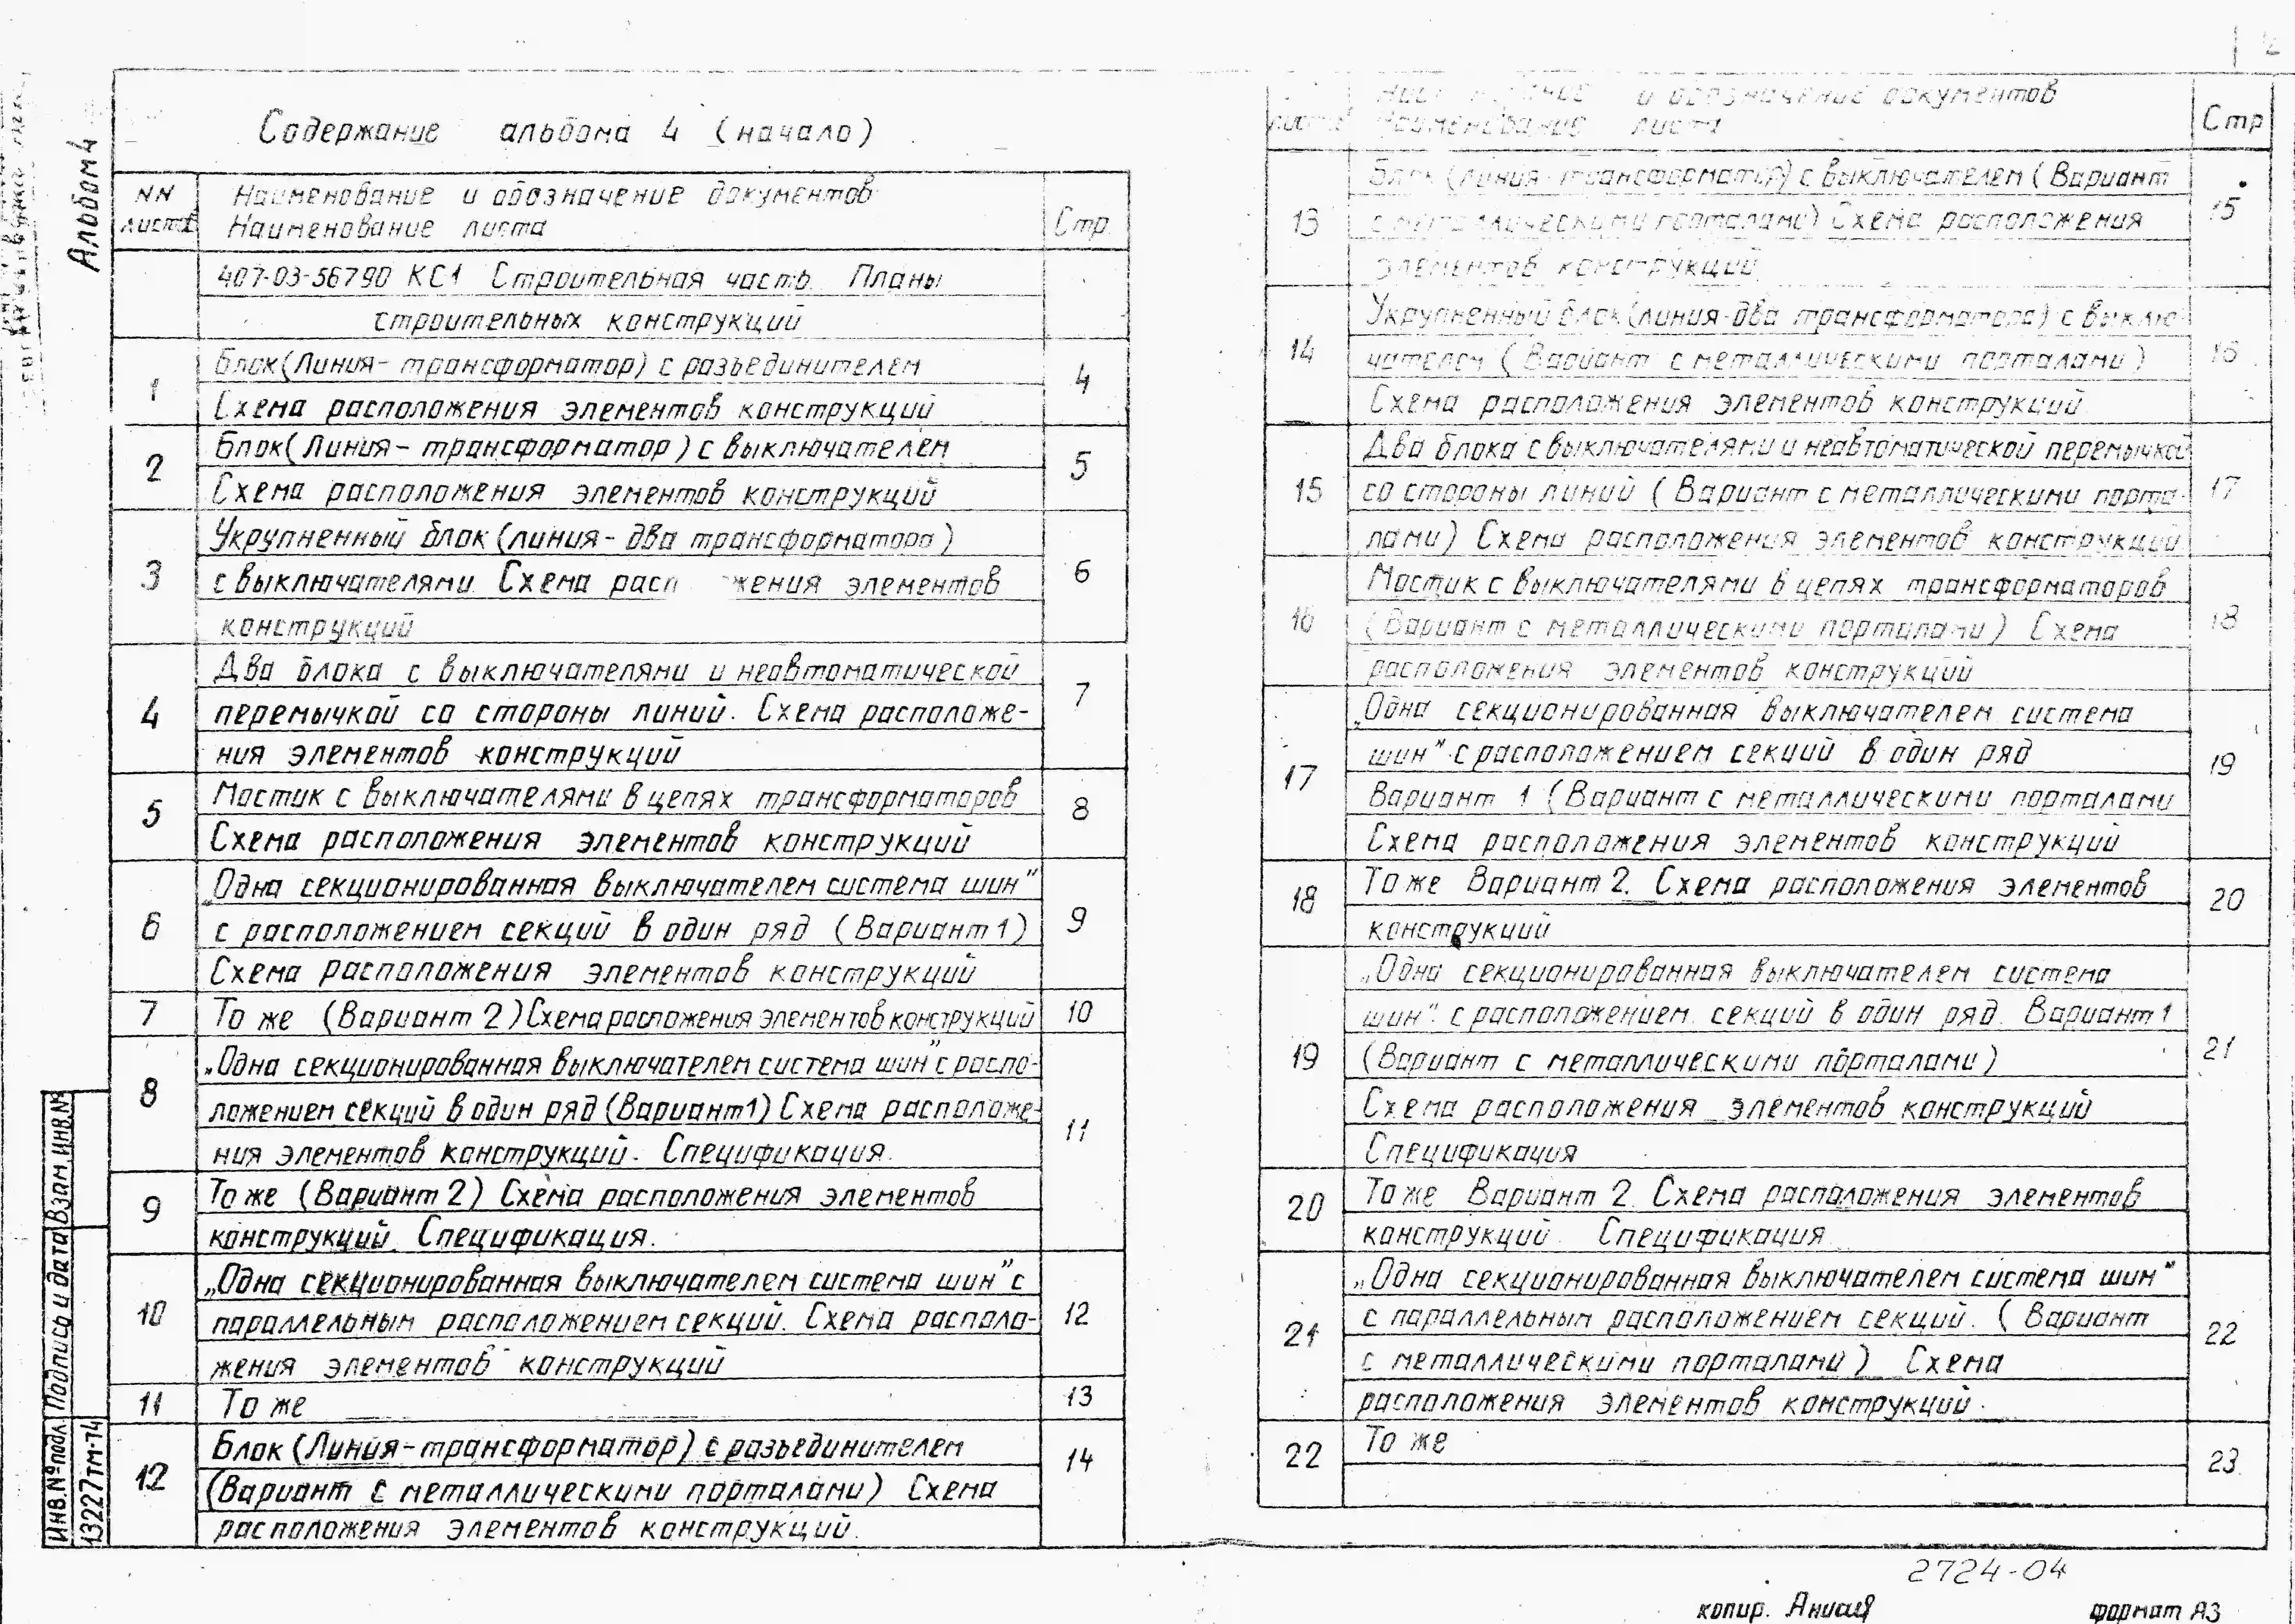 Альбом 4
Содержание альбома 4 (начало)
NN Наименование и обозначение документов
листа Наименование листа Стр.
407-03-56790 КС1 Строительная часть. Планы
строительных конструкций
1 Блок(Линия- трансформатор) с разъединителем 4
Схема расположения элементов конструкций
2 Блок(Линия- трансформатор) с выключателем 5
Схема расположения элементов конструкций
3 Укрупненный блок (линия- два трансформатора) 6
с выключателями. Схема элементов
конструкций
4 Два блока с выключателями и неавтоматической 7
перемычкой со стороны линий. Схема расположе-
ния элементов конструкций
5 Мостик с выключателями в цепях трансформаторов 8
Схема расположения элементов конструкций
6 „Одна секционированная выключателем система шин" 9
с расположением секций в один ряд (Вариант 1)
Схема расположения элементов конструкций
7 То же (Вариант 2) Схема расположения элементов конструкций 10
8 „Одна секционированная выключателем система шин" с распо- 11
ложением секций в один ряд (Вариант1) Схема расположе-
ния элементов конструкций. Спецификация.
9 То же (Вариант 2) Схема расположения элементов
конструкций. Спецификация.
10 „Одна секционированная выключателем система шин" с 12
параллельным расположением секций. Схема располо-
жения элементов конструкций
11 То же 13
12 Блок (Линия-трансформатор) с разъединителем 14
(Вариант с металлическими порталами) Схема
расположения элементов конструкций.
и обозначение документов
листа Наименование листа Стр
13 Блок (линия-трансформатор) с выключателем (Вариант 15
с металлическими порталами) Схема расположения
элементов конструкций
14 Укрупненный блок (линия-два трансформатора) с выклю- 16
чателем (Вариант с металлическими порталами)
Схема расположения элементов конструкций
15 Два блока с выключателями и неавтоматической перемычкой 17
со стороны линий (Вариант с металлическими порта-
лами) Схема расположения элементов конструкций
16 Мостик с выключателями в цепях трансформаторов 18
(Вариант с металлическими порталами) Схема
расположения элементов конструкций
17 „Одна секционированная выключателем система 19
шин" с расположением секций в один ряд
Вариант 1 (Вариант с металлическими порталами
Схема расположения элементов конструкций
18 То же Вариант 2. Схема расположения элементов 20
конструкций
19 „Одна секционированная выключателем система 21
шин" с расположением секций в один ряд. Вариант 1
(Вариант с металлическими порталами)
Схема расположения элементов конструкций
Спецификация
20 То же Вариант 2. Схема расположения элементов
конструкций. Спецификация
21 „Одна секционированная выключателем система шин" 22
с параллельным расположением секций. (Вариант
с металлическими порталами) Схема
расположения элементов конструкций.
22 То же 23
Взам.инв.№
Подпись и дата
Инв.№подл.
13227тм-т4
2724-04
копир. формат А3